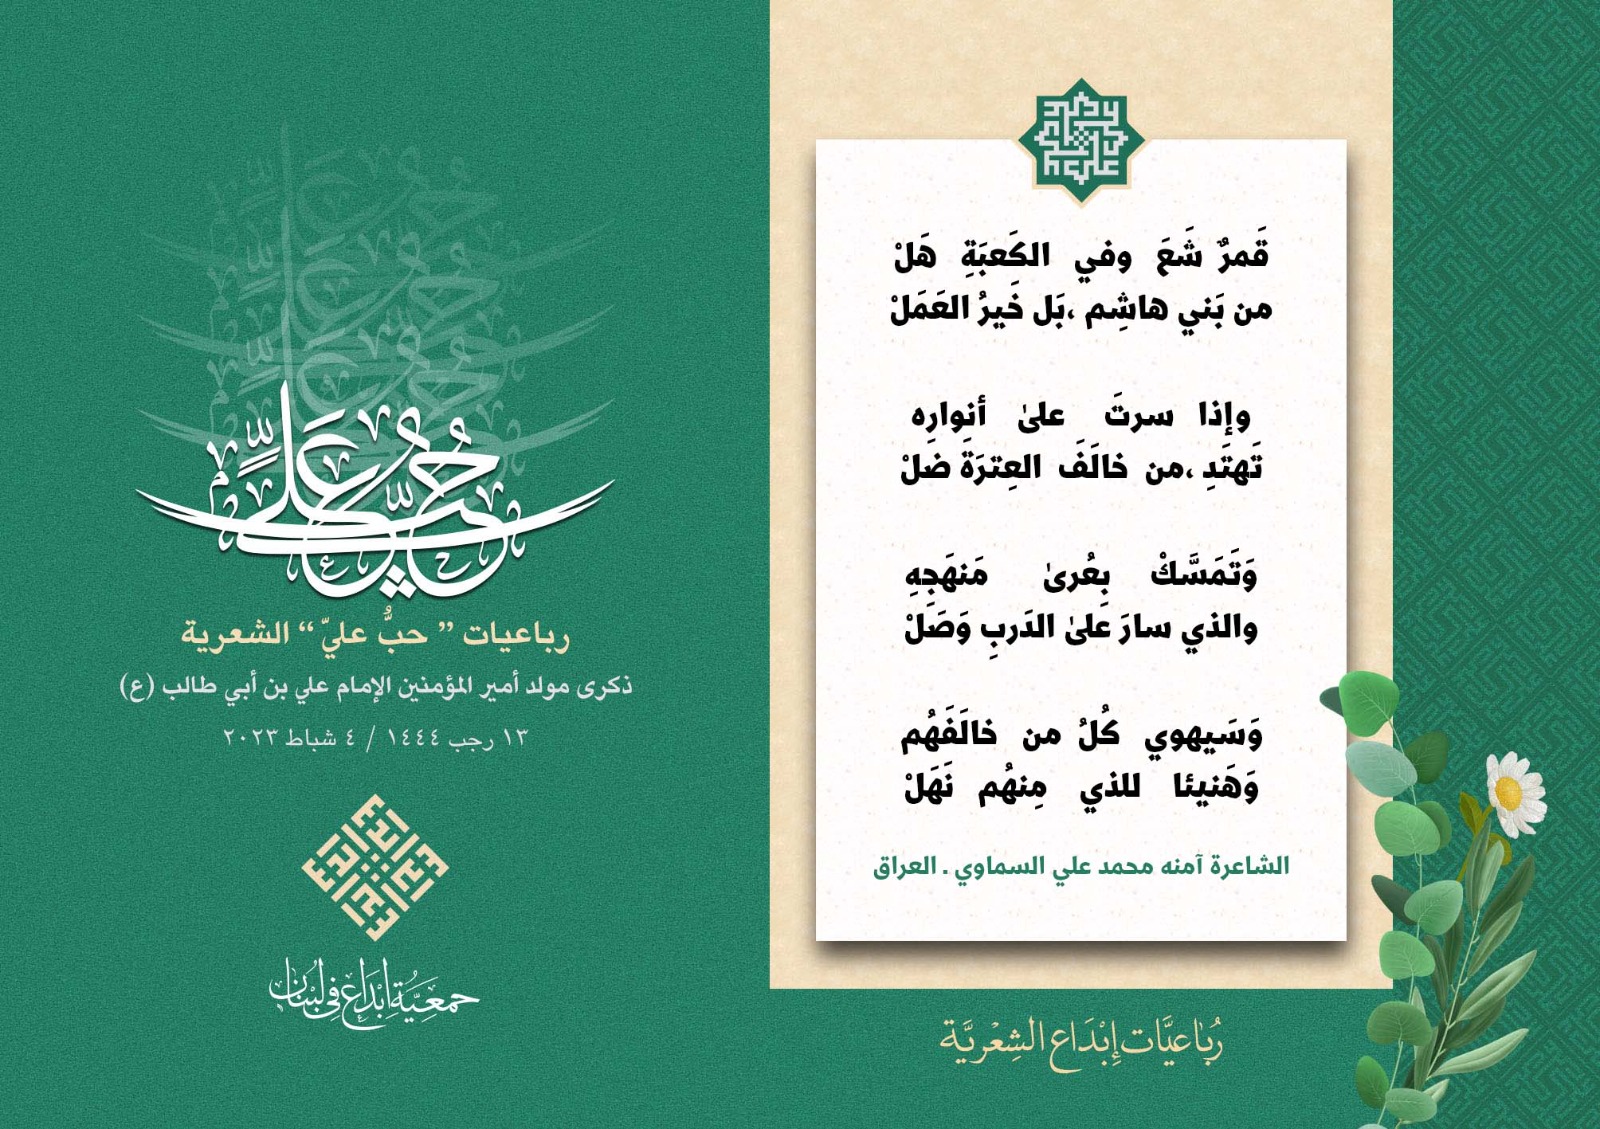 قَمرٌ شَعَ وفي الكَعبَةِ هَلْ
من بَني هاشِم ،بَل خَيرُ العَمَلْ
وإذا سرتَ علىٰ أنوارِه
تَهتَدِ ،من خالَفَ العِترَةَ ضلْ
وَتَمَسَّكْ بِعُرىٰ مَنهَجِهِ
والذي سارَ علىٰ الدَربِ وَصَلْ
وَسَيهوي كُلُ من خالَفَهُم
وَهَنيئا للذي مِنهُم نَهَلْ
الشاعرة آمنه محمد علي السماوي . العراق
رُباعيَّات إبْدَاع الشِعْريَّة
حُبُّ عَلِيٍّ
رباعيات ” حبُّ عليّ “ الشعرية
ذكرى مولد أمير المؤمنين الإمام علي بن أبي طالب (ع)
١٣ رجب ١٤٤٤ / ٤ شباط ٢٠٢٣
جمعيَّة إبْدَاع في لبْنان